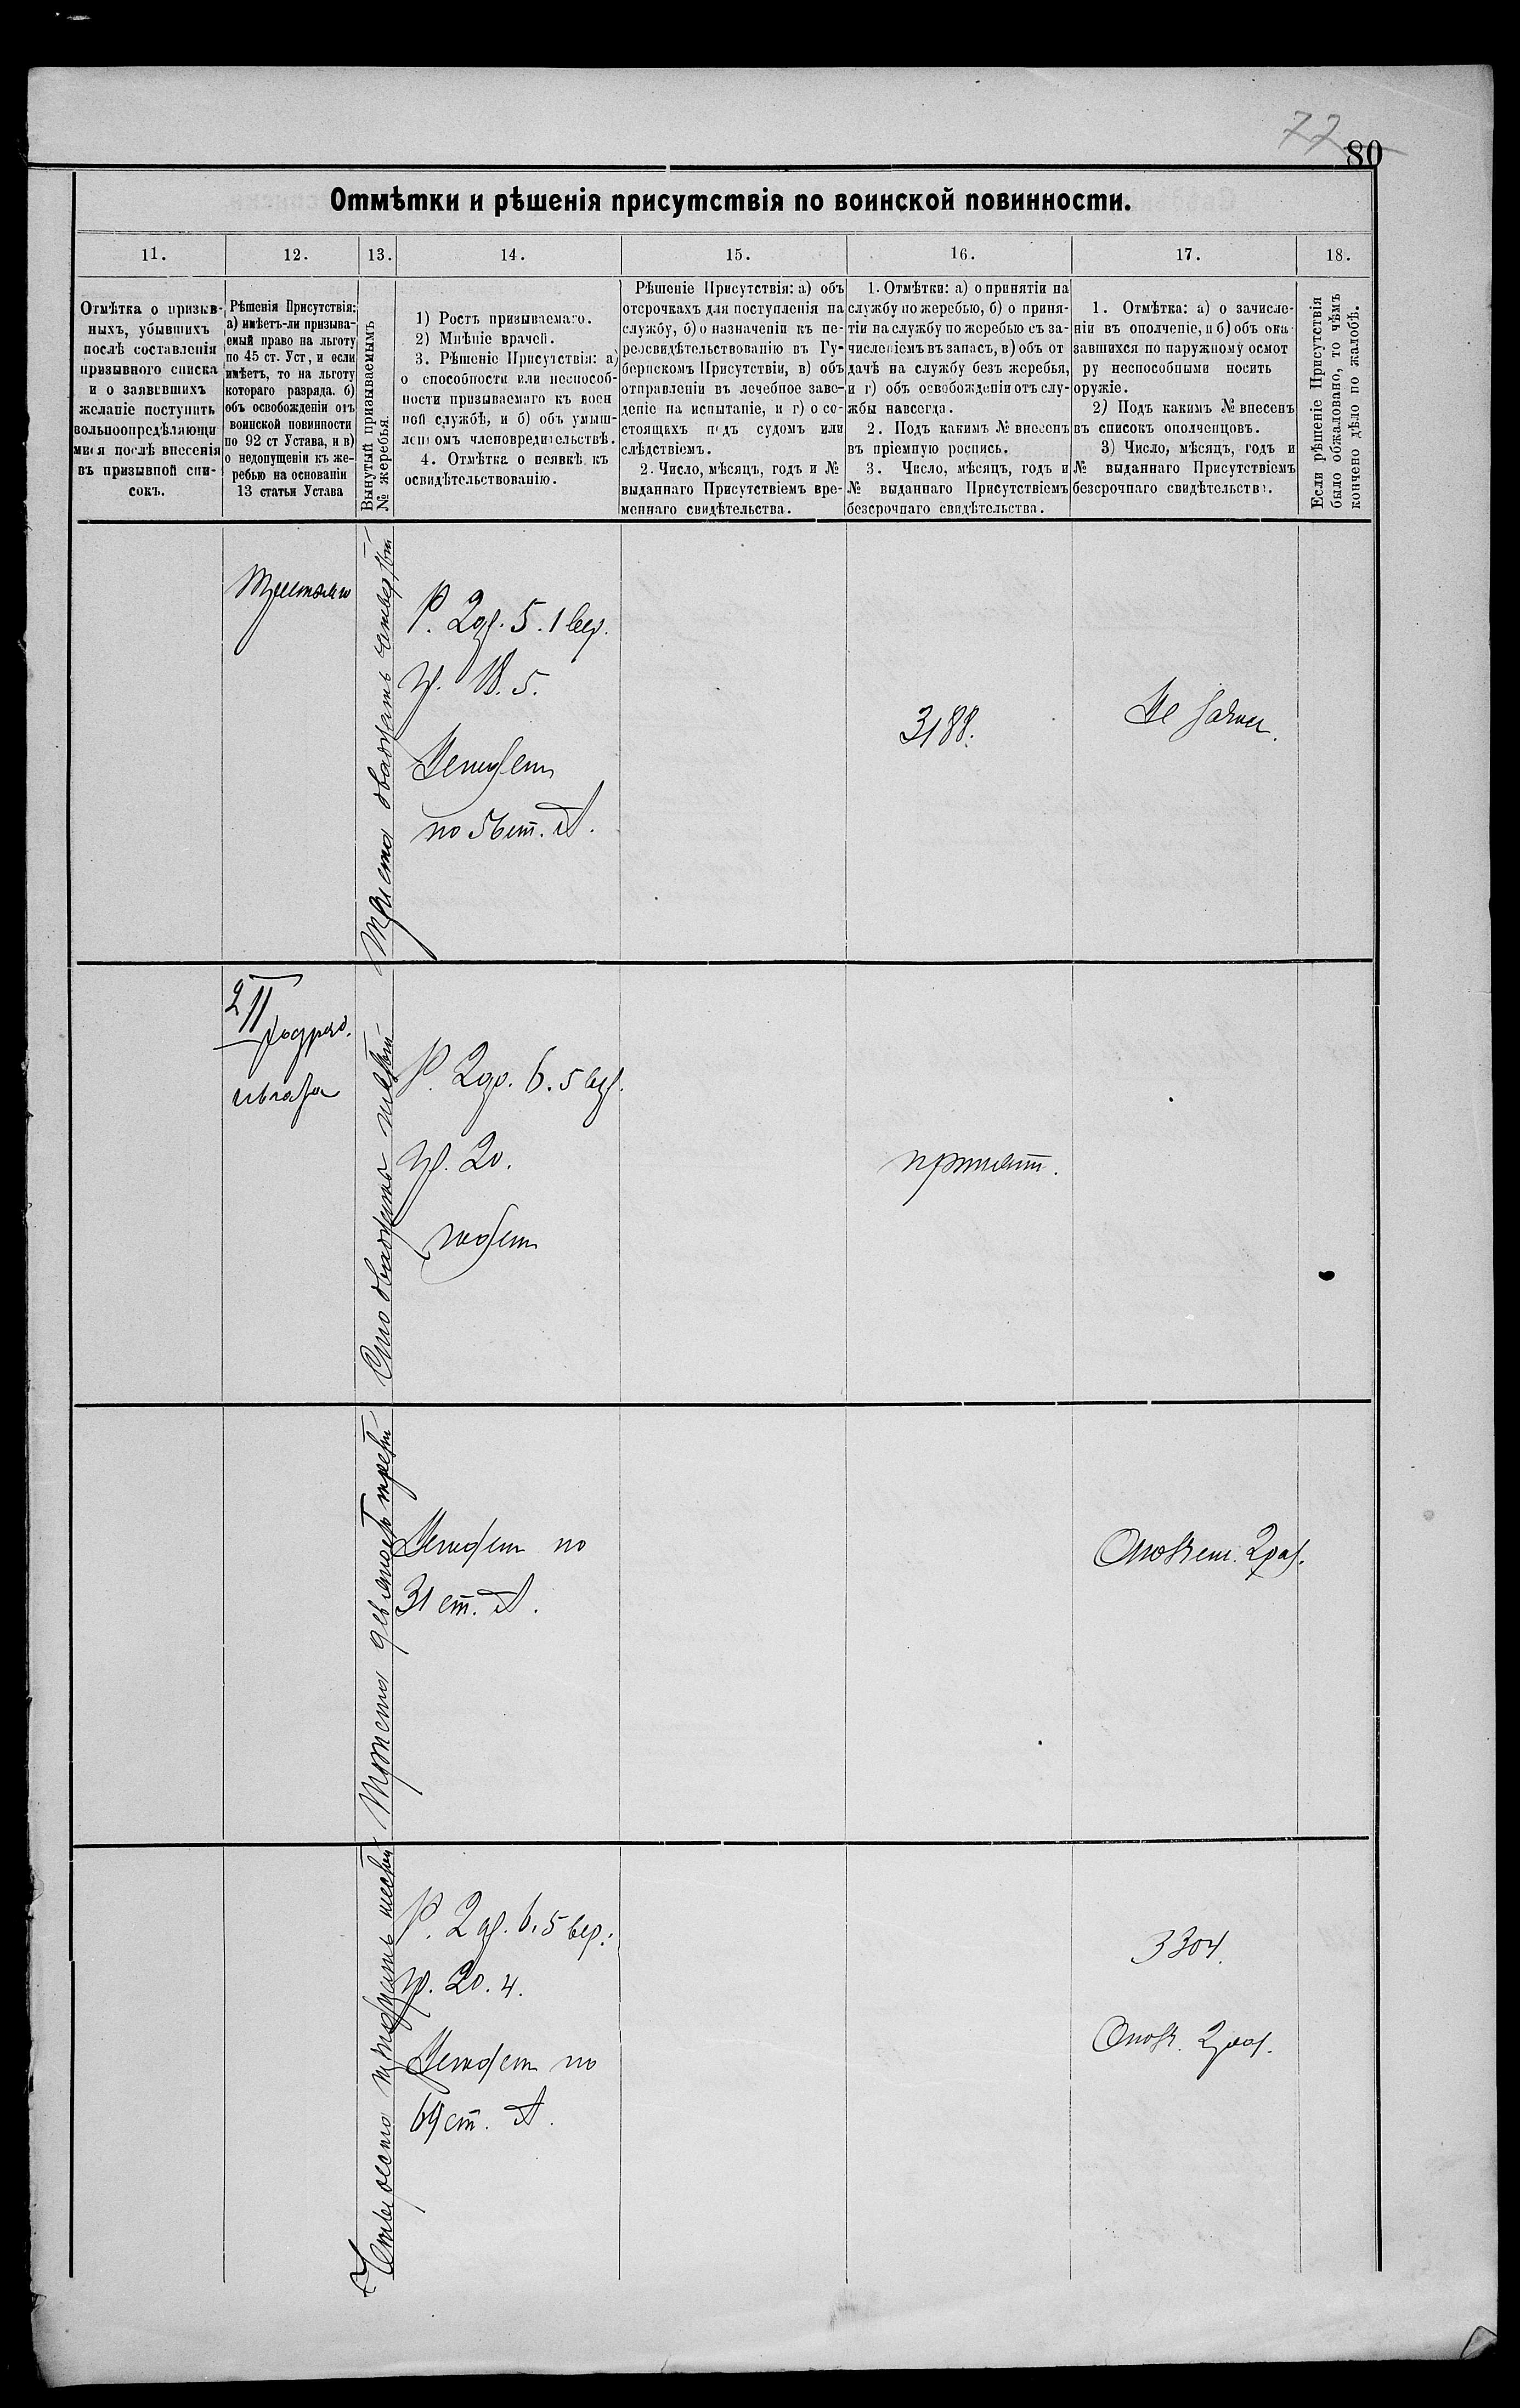 77
80
Отмѣтки и рѣшенія присутствія по воинской повинности.
11.
12.
13.
14.
15.
16.
17.
18.
Отмѣтка о призыв-
ныхъ, убывшихъ
послѣ составленія
призывного списка
и о заявившихъ
желаніе поступить
вольноопредѣляющи
мися послѣ внесенія
въ призывной спи-
сокъ.
Рѣшенія Присутствія:
а) имѣетъ-ли призыва-
емый право на льготу
по 45 ст. Уст, и если
имѣетъ, то на льготу
котораго разряда. б)
объ освобожденіи отъ
воинской повинности
по 92 ст Устава, и в)
о недопущеніи къ же-
ребью на основаніи
13 статьи Устава
Вынутый призываемымъ
№ жеребья.
1) Ростъ призываемаго.
2) Мнѣніе врачей.
3. Рѣшеніе Присутствія: а)
о способности или неспособ-
ности призываемаго къ воен
ной службѣ, и б) объ умыш-
ленномъ членовредительствѣ.
4. Отмѣтка о неявкѣ къ
освидѣтельствованію.
Рѣшеніе Присутствія: а) объ
отсрочкахъ для поступленія на
службу, б) о назначеніи къ пе-
реосвидѣтельствованію въ Гу-
бернскомъ Присутствіи, в) объ
отправленіи въ лечебное заве-
деніе на испытаніе, и г) о со-
стоящихъ подъ судомъ или
слѣдствіемъ.
2. Число, мѣсяцъ, годъ и №
выданнаго Присутствіемъ вре-
меннаго свидѣтельства.
1. Отмѣтки: а) о принятіи на
службу по жеребью, б) о приня-
тіи на службу по жеребью съ за-
численіемъ въ запасъ, в) объ от
дачѣ на службу безъ жеребья,
и г) объ освобожденіи отъ слу-
жбы навсегда.
2. Подъ какимъ № внесенъ
въ пріемную роспись.
3. Число, мѣсяцъ, годъ и
№ выданнаго Присутствіемъ
безсрочнаго свидѣтельства.
1. Отмѣтка: а) о зачисле-
ніи въ ополченіе, и б) объ ока-
завшихся по наружному осмот
ру неспособными носить
оружіе.
2) Подъ какимъ № внесенъ
въ списокъ ополченцовъ.
3) Число, мѣсяцъ, годъ и
№ выданнаго Присутствіемъ
безсрочнаго свидѣтельства.
Если рѣшеніе Присутствія
было обжаловано, то чѣмъ
кончено дѣло по жалобѣ.
Триста двадцать четвертый
Р. 2 ар. 5. 1 вер.
18. 5.
Негоден
по 56 ст. А.
3188.
Не зачис.
2 II разряд.
Сто двадцать
Р. 2 ар. 6. 5 вер.
20.
годен
принят.
Триста девяносто третій
Негоден по
31 ст. А.
Ополчен. 2 раз.
Четыреста тридцать шестой
Р. 2 ар. 6. 5 вер.
20. 4.
Негоден по
69 ст. А.
3304.
Ополч. 2 раз.